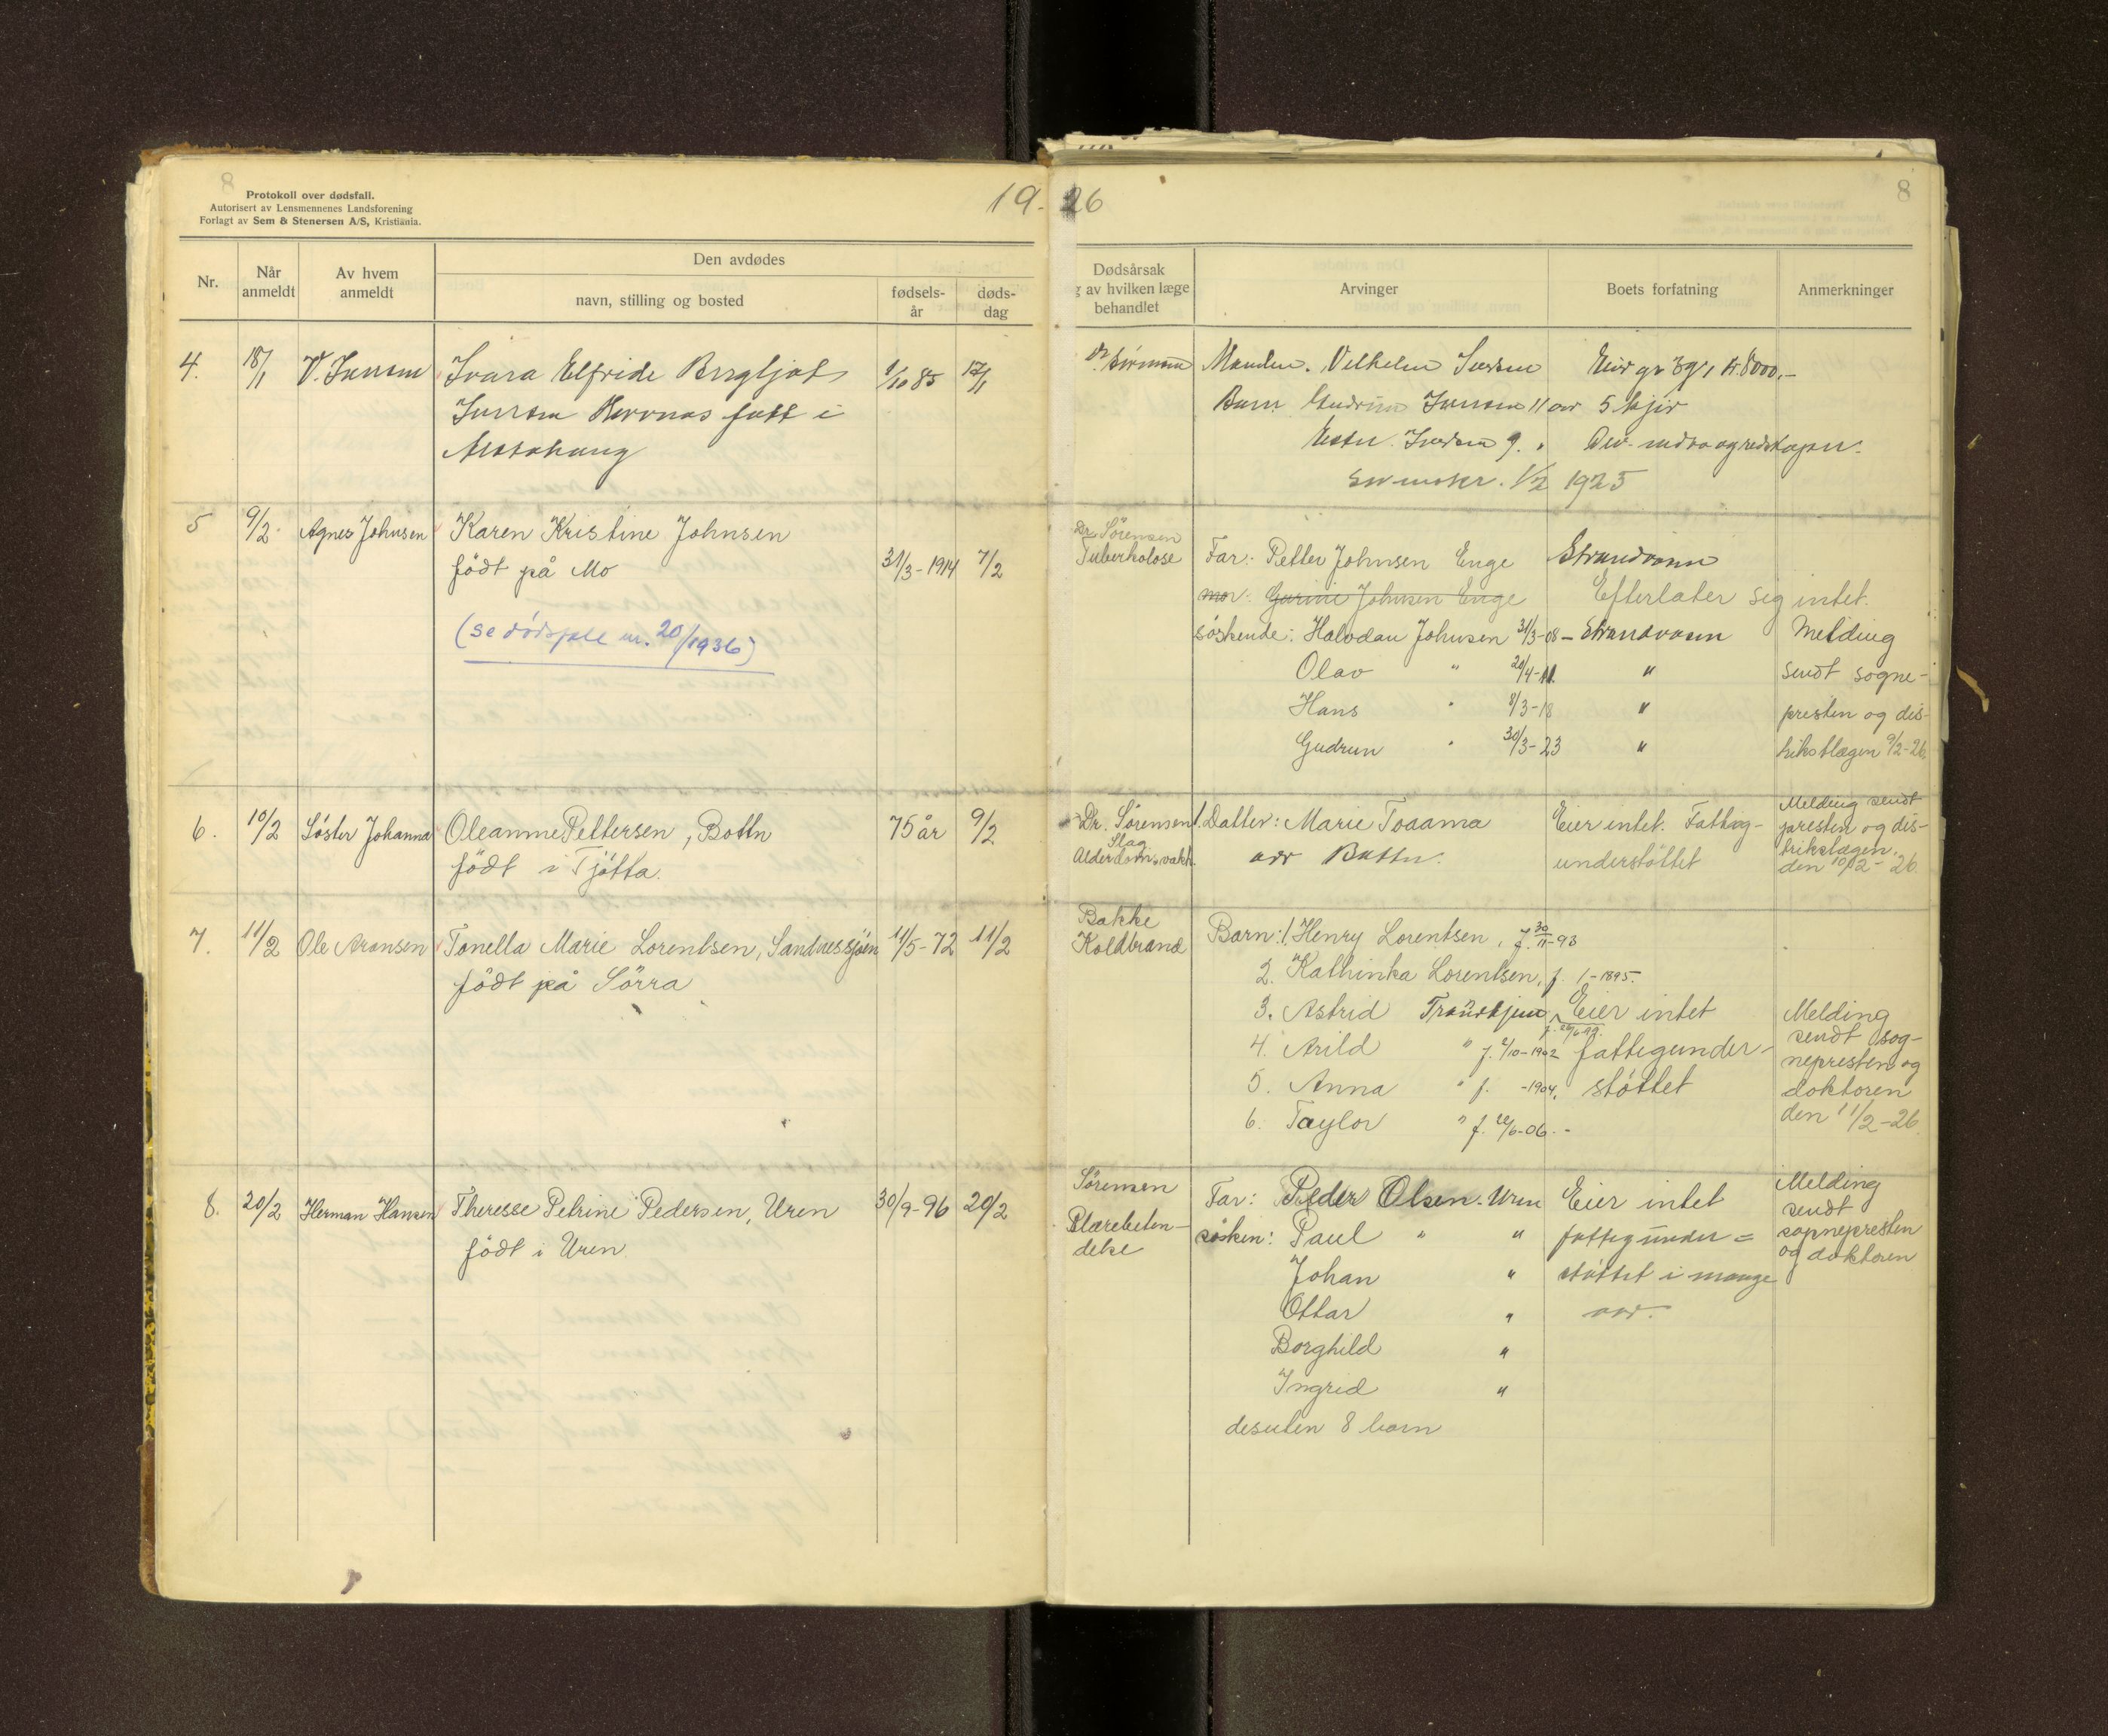 8
Protokoll over dødsfall.
Autorisert av Lensmennenes Landsforening
Forlagt av Sem & Stenersen A/S, Kristiania.
19-26
8
Nr.
Når anmeldt
Av hvem anmeldt
Den avdødes
navn, stilling og bosted
fødsels-år
døds-dag
Dødsårsak
av hvilken læge
behandlet
Arvinger
Boets forfatning
Anmerkninger
4. 18/1 Elfride Bergljot /10 85
født i
Manden. Vilhelm kr. 8000.-
Barn Gudrun 11 aar 5 kjir
9. "
1/2 1925
5 9/2 Agnes Johnsen Karen Kristine Johnsen
født på Mo 31/3-1914 7/2
(se dødsfall nr. 20/1936)
Dr. Sörensen
Tuberkolose
Far: Petter Johnsen Enge Strandvann
mor: Johnsen Enge Efterlater sig intet.
söskende: Halvdan Johnsen 31/3-08 - Strandvann Melding
Olav " 20/4-11. " sendt sogne-
Hans " 8/3-18 " presten og dis-
Gudrun " 30/3-23 " trikstlægen 9/2-26
6. 10/2 Söster Johanna Oleanna Pettersen, Bottn 75 år 9/2
født i Tjötta.
Dr. Sörensen
Slag
1. Datter: Marie Toaama
Eier intet. Fattig-
understöttet
Melding sendt
presten og dis-
trikslægen.
den 10/2-26
7. 11/2 Ole Aransen Tonella Marie Lorentsen, Sandnessjöen 11/5-72 11/2
født på Sörra
Bakke
Koldbrand
Barn: 1. Henry Lorentsen, f. 30/11-93
2. Kathinka Lorentsen, f. 1-1895.
3. Astrid Eier intet
4. Arild " f. 2/10-1902 fattigunder-
5. Anna " f. -1904. stöttet
6. Taylor " f. /6-06.-
Melding
sendt sog-
nepresten og
doktoren
den 11/2-26.
8. 20/2 Herman Hansen Theresse Petrine Pedersen, Uren 30/9-96 20/2
født i Uren
Sörensen
Far: Peder Olsen. Uren Eier intet
søsken: Paul " " fattigunder=
Johan " støttet i mange
Ottar " aar.
Borghild "
Ingrid "
desuten 8 barn
Melding
sendt
sognepresten
og doktoren